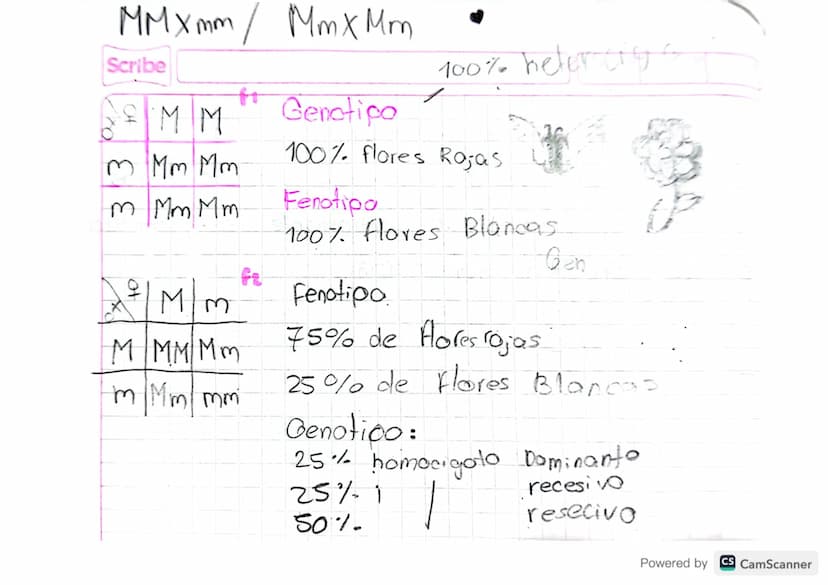 MMXmm / MmXMm
Scribe
100%
f1
♂ ♀ M M
m Mm Mm
m Mm Mm
Genotipo
100% flores Rojas
Fenotipo
100% flores Blancas
Gen
f2
♂ ♀ M m
M MM Mm
m Mm mm
Fenotipo
75% de flores rojas
25% de flores Blancas
Genotico:
25% homocigoto Dominante
25% i recesivo
50% resecivo
Powered by CS CamScanner